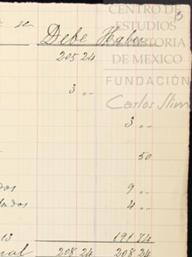 CENTRO DE
ESTUDIOS
DE HISTORIA
DE MEXICO
FUNDACIÓN
Carlos Slim
Debe Haber
205 24
3 ..
3 ..
50
9 ..
4 ..
13 191 74
208 24 208 24